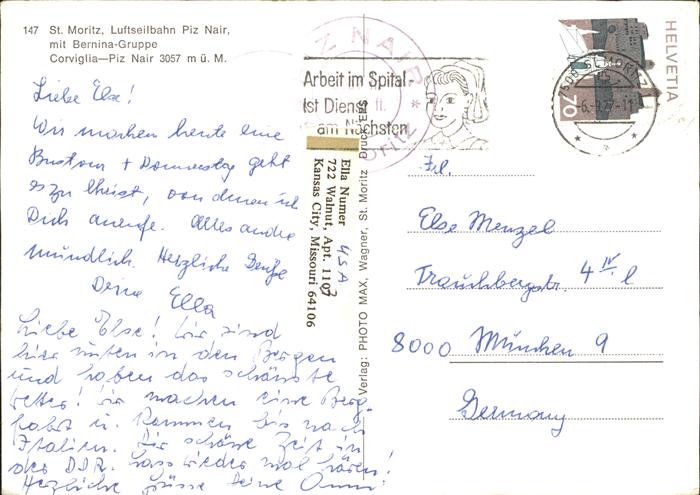 147 St. Moritz, Luftseilbahn Piz Nair,
mit Bernina-Gruppe
Corviglia—Piz Nair 3057 m ü. M.
Liebe Else!
Wir machen heute eine
Bustour + Donnerstag geht
es zu Christ, von denen ich
Dich anrufe. Alles andre
mündlich. Herzliche Grüße
Deine Ella
Liebe Else! Wir sind
hier mitten in den Bergen
und haben das schönste
Wetter! Wir machen eine Berg-
fahrt u. kommen bis nach
Italien. Dir schöne Zeit in
der DDR. Lass wieder mal hören!
Herzliche Grüsse Deine
PIZ NAIR
Arbeit im Spital-
ist Dienst
am Nächsten
Ella Numer
722 Walnut, Apt. 1103
Kansas City, Missouri 64106
USA
Verlag: PHOTO MAX, Wagner, St. Moritz
HELVETIA
70
Frl.
Else Menzel
Trauchbergstr. 4 IV l
8000 München 9
Germany